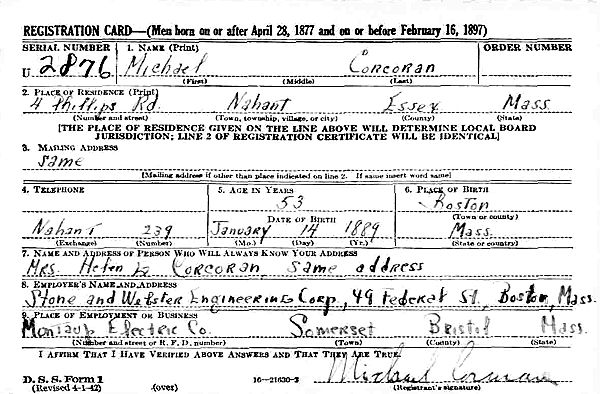 REGISTRATION CARD—(Men born on or after April 28, 1877 and on or before February 16, 1897)
SERIAL NUMBER 1. NAME (Print) ORDER NUMBER
U 2876 Michael Corcoran
(First) (Middle) (Last)
2. PLACE OF RESIDENCE (Print)
4 Phillips Rd. Nahant Essex Mass
(Number and street) (Town, township, village, or city) (County) (State)
[THE PLACE OF RESIDENCE GIVEN ON THE LINE ABOVE WILL DETERMINE LOCAL BOARD
JURISDICTION; LINE 2 OF REGISTRATION CERTIFICATE WILL BE IDENTICAL]
3. MAILING ADDRESS
Same
[Mailing address if other than place indicated on line 2. If same insert word same]
4. TELEPHONE 5. AGE IN YEARS 6. PLACE OF BIRTH
53 Boston
DATE OF BIRTH (Town or county)
Nahant 239 January 14 1889 Mass.
(Exchange) (Number) (Mo.) (Day) (Yr.) (State or country)
7. NAME AND ADDRESS OF PERSON WHO WILL ALWAYS KNOW YOUR ADDRESS
Mrs. Helen L. Corcoran, same address
8. EMPLOYER'S NAME AND ADDRESS
Stone and Webster Engineering Corp., 49 Federal St., Boston, Mass.
9. PLACE OF EMPLOYMENT OR BUSINESS
Montaup Electric Co. Somerset Bristol Mass.
(Number and street or R. F. D. number) (Town) (County) (State)
I AFFIRM THAT I HAVE VERIFIED ABOVE ANSWERS AND THAT THEY ARE TRUE.
D. S. S. Form 1 Michael Corcoran
(Revised 4-1-42) (over) 16—21630-2 (Registrant's signature)